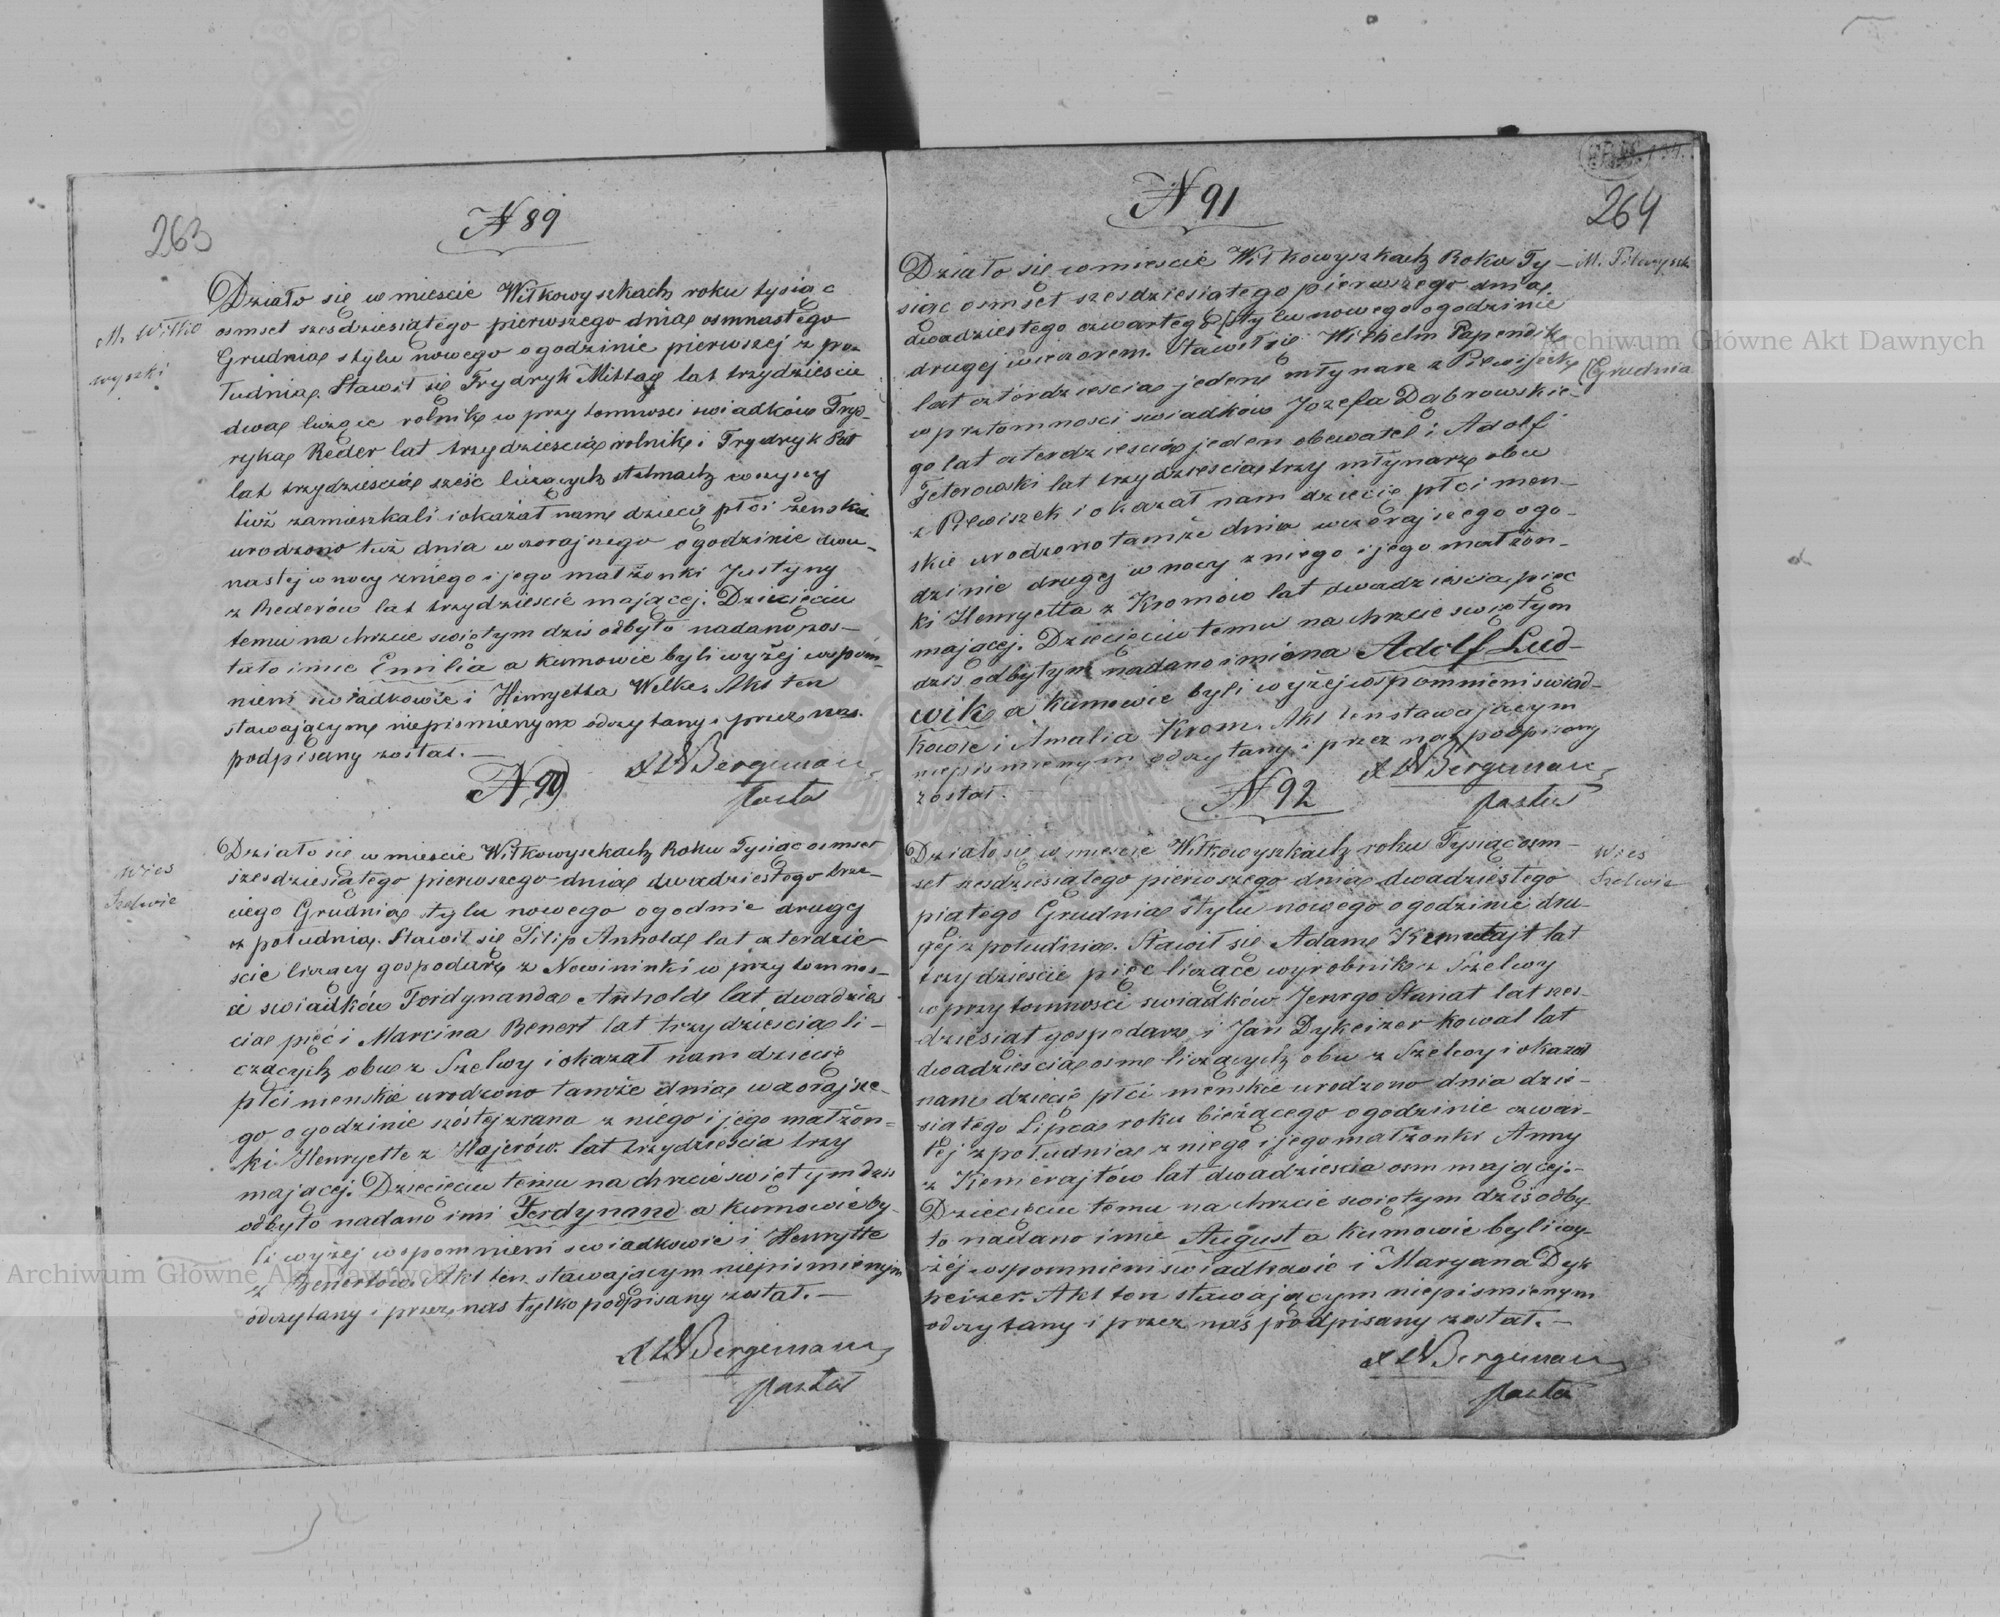 263
N 89
M. Wiłko
wyszki
Działo się w mieście Wiłkowyszkach roku tysiąc
osmset szesdziesiątego pierwszego dnia osmnastego
Grudnia stylu nowego o godzinie pierwszej z po-
łudnia. Stawił się Frydryk Mittag lat trzydzieście
dwa liczące rolnik w przytomnosci swiadków Fryd-
ryka Reder lat trzydzieścia rolnik i Frydryk
lat trzydzieścia sześć liczących stelmach wszyscy
tuż zamieszkali i okazał nam dziecię płci żenskie
urodzono tuż dnia wczorajszego o godzinie dwu-
nastej w nocy z niego i jego małżonki Justyny
z Rederów lat trzydzieście mającej. Dziecięciu
temu na chrzcie swiętym dziś odbyło nadano zos-
tało imie Emilia a kumowie byli wyżej wspom-
nieni swiadkowie i Henryetta Welke. Akt ten
stawającym niepismienym odczytany i przez nas
podpisany został.
Bergeman
pastor
N 90
Wies
Szelwie
Działo się w mieście Wiłkowyszkach Roku Tysiąc osmset
szesdziesiątego pierwszego dnia dwadziestego trze-
ciego Grudnia stylu nowego o godnie drugej
z południa. Stawił się Filip Anhold lat czterdzie-
scie liczacy gospodarz z Nowininki w przytomnos-
ci swiadków Ferdynanda Anhold lat dwadzies
cia pięć i Marcina Benert lat trzydziescia li-
czacych obu z Szelwy i okazał nam dziecię
płci menskie urodzono tamże dnia wczorajsze-
go o godzinie szóstej z rana z niego i jego małżon-
ki Henryette z Hajerów lat trzydziescia trzy
mającej. Dziecięciu temu na chrzcie swiętym dzis
odbyło nadano imi Ferdynand a kumowie by-
li wyżej wspomnieni swiadkowie i Henrytte
z Benertów. Akt ten stawającym niepismienym
odczytany i przez nas tylko podpisany został.
Bergeman
pastor
264
N 91
M. Pilwyszk
Działo się w mieście Wiłkowyszkach Roku Ty-
siąc osmset szesdziesiątego pierwszego dnia
dwadziestego czwartego [stylu nowego o godzinie
[Grudnia
drugej wieczorem. Stawił się Wilhelm Papendik
lat czterdziescia jeden młynarz z Pilwiszek
w prztomnosci swiadków Jozefa Dąbrowskie-
go lat czterdziescia jeden obewatel i Adolf
Feterowski lat trzydziescia trzy młynarz obu
z Pilwiszek i okazał nam dziecię płci men-
skie urodzono tamże dnia wczorajszego o go-
dzinie drugej w nocy z niego i jego małżon-
ki Henryetta z Kromów lat dwadzieścia pięc
mającej. Dziecięciu temu na chrzcie swiętym
dziś odbytym nadano imiona Adolf Lud-
wik a kumowie byli wyżej wspomnieni swiad-
kowie i Amalia Krom. Akt ten stawającym
niepismienym odczytany i przez nas podpisany
został.
Bergeman
pastor
N 92
Wies
Szelwie
Działo się w mieście Wiłkowyszkach roku Tysiąc osm-
set szesdziesiątego pierwszego dnia dwadziestego
piątego Grudnia stylu nowego o godzinie dru-
gej z południa. Stawił się Adam lat
trzydziescie pięc liczące wyrobnik z Szelwy
w przytomnosci swiadków Jenrgo Stanat lat szes-
dziesiąt gospodarz i Jan Dykeizer kowal lat
dwadziescia osm liczących obu z Szelwy i okazał
nam dziecię płci menskie urodzono dnia dzie-
siątego Lipca roku bieżącego o godzinie czwar-
tej z południa z niego i jego małżonki Anny
z Kemerajtów lat dwadziescia osm mającej.
Dziecięciu temu na chrzcie swiętym dziś odby-
to nadano imie August a kumowie byli wy-
żej wspomnieni swiadkowie i Maryana Dyk
heizer. Akt ten stawającym niepismienym
odczytany i przez nas podpisany został.
Bergeman
pastor
Archiwum Główne Akt Dawnych
Archiwum Główne Akt Dawnych